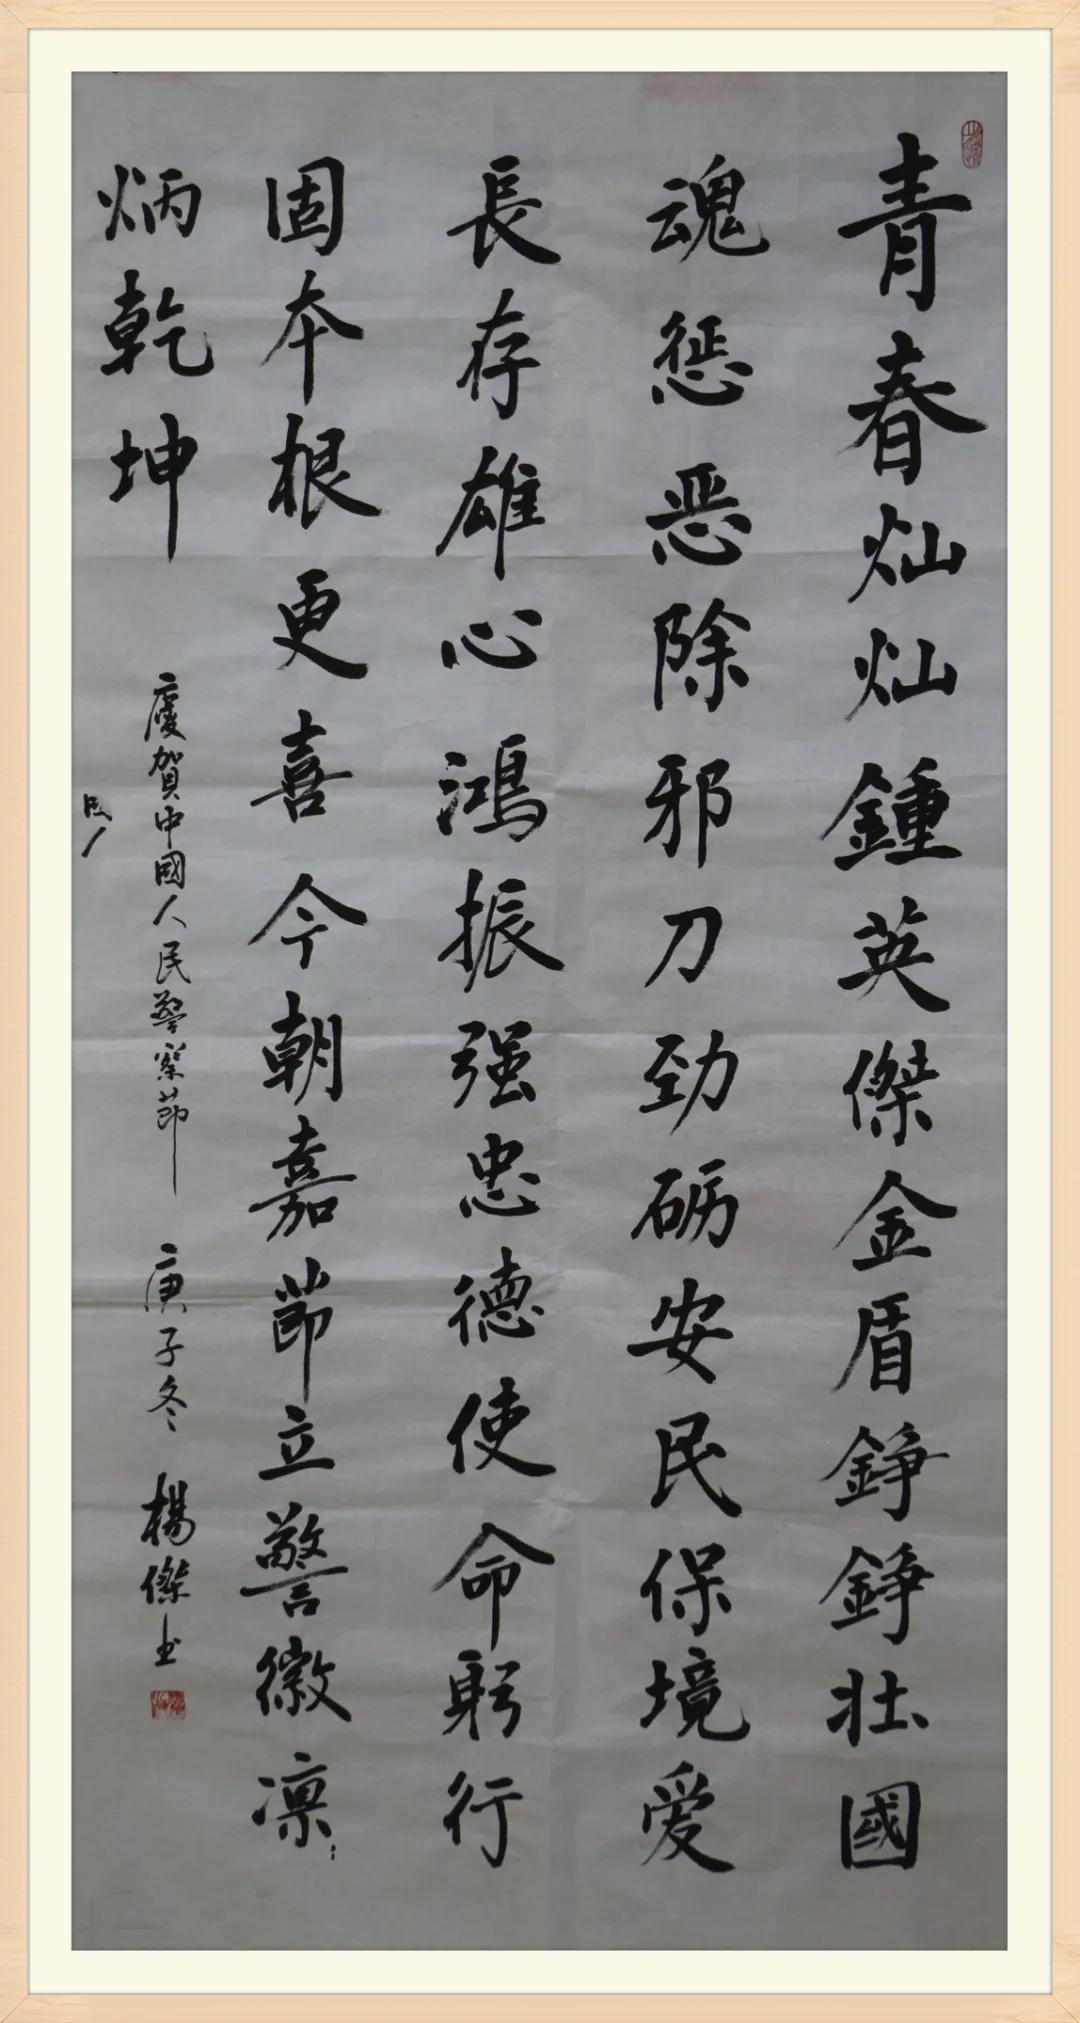 青春灿灿鍾英傑金盾錚錚壮國
魂惩恶除邪刀劲砺安民保境爱
長存雄心鴻振强忠德使命躬行
固本根更喜今朝嘉節立警徽凛
炳乾坤
慶賀中國人民警察節
庚子冬
楊傑书